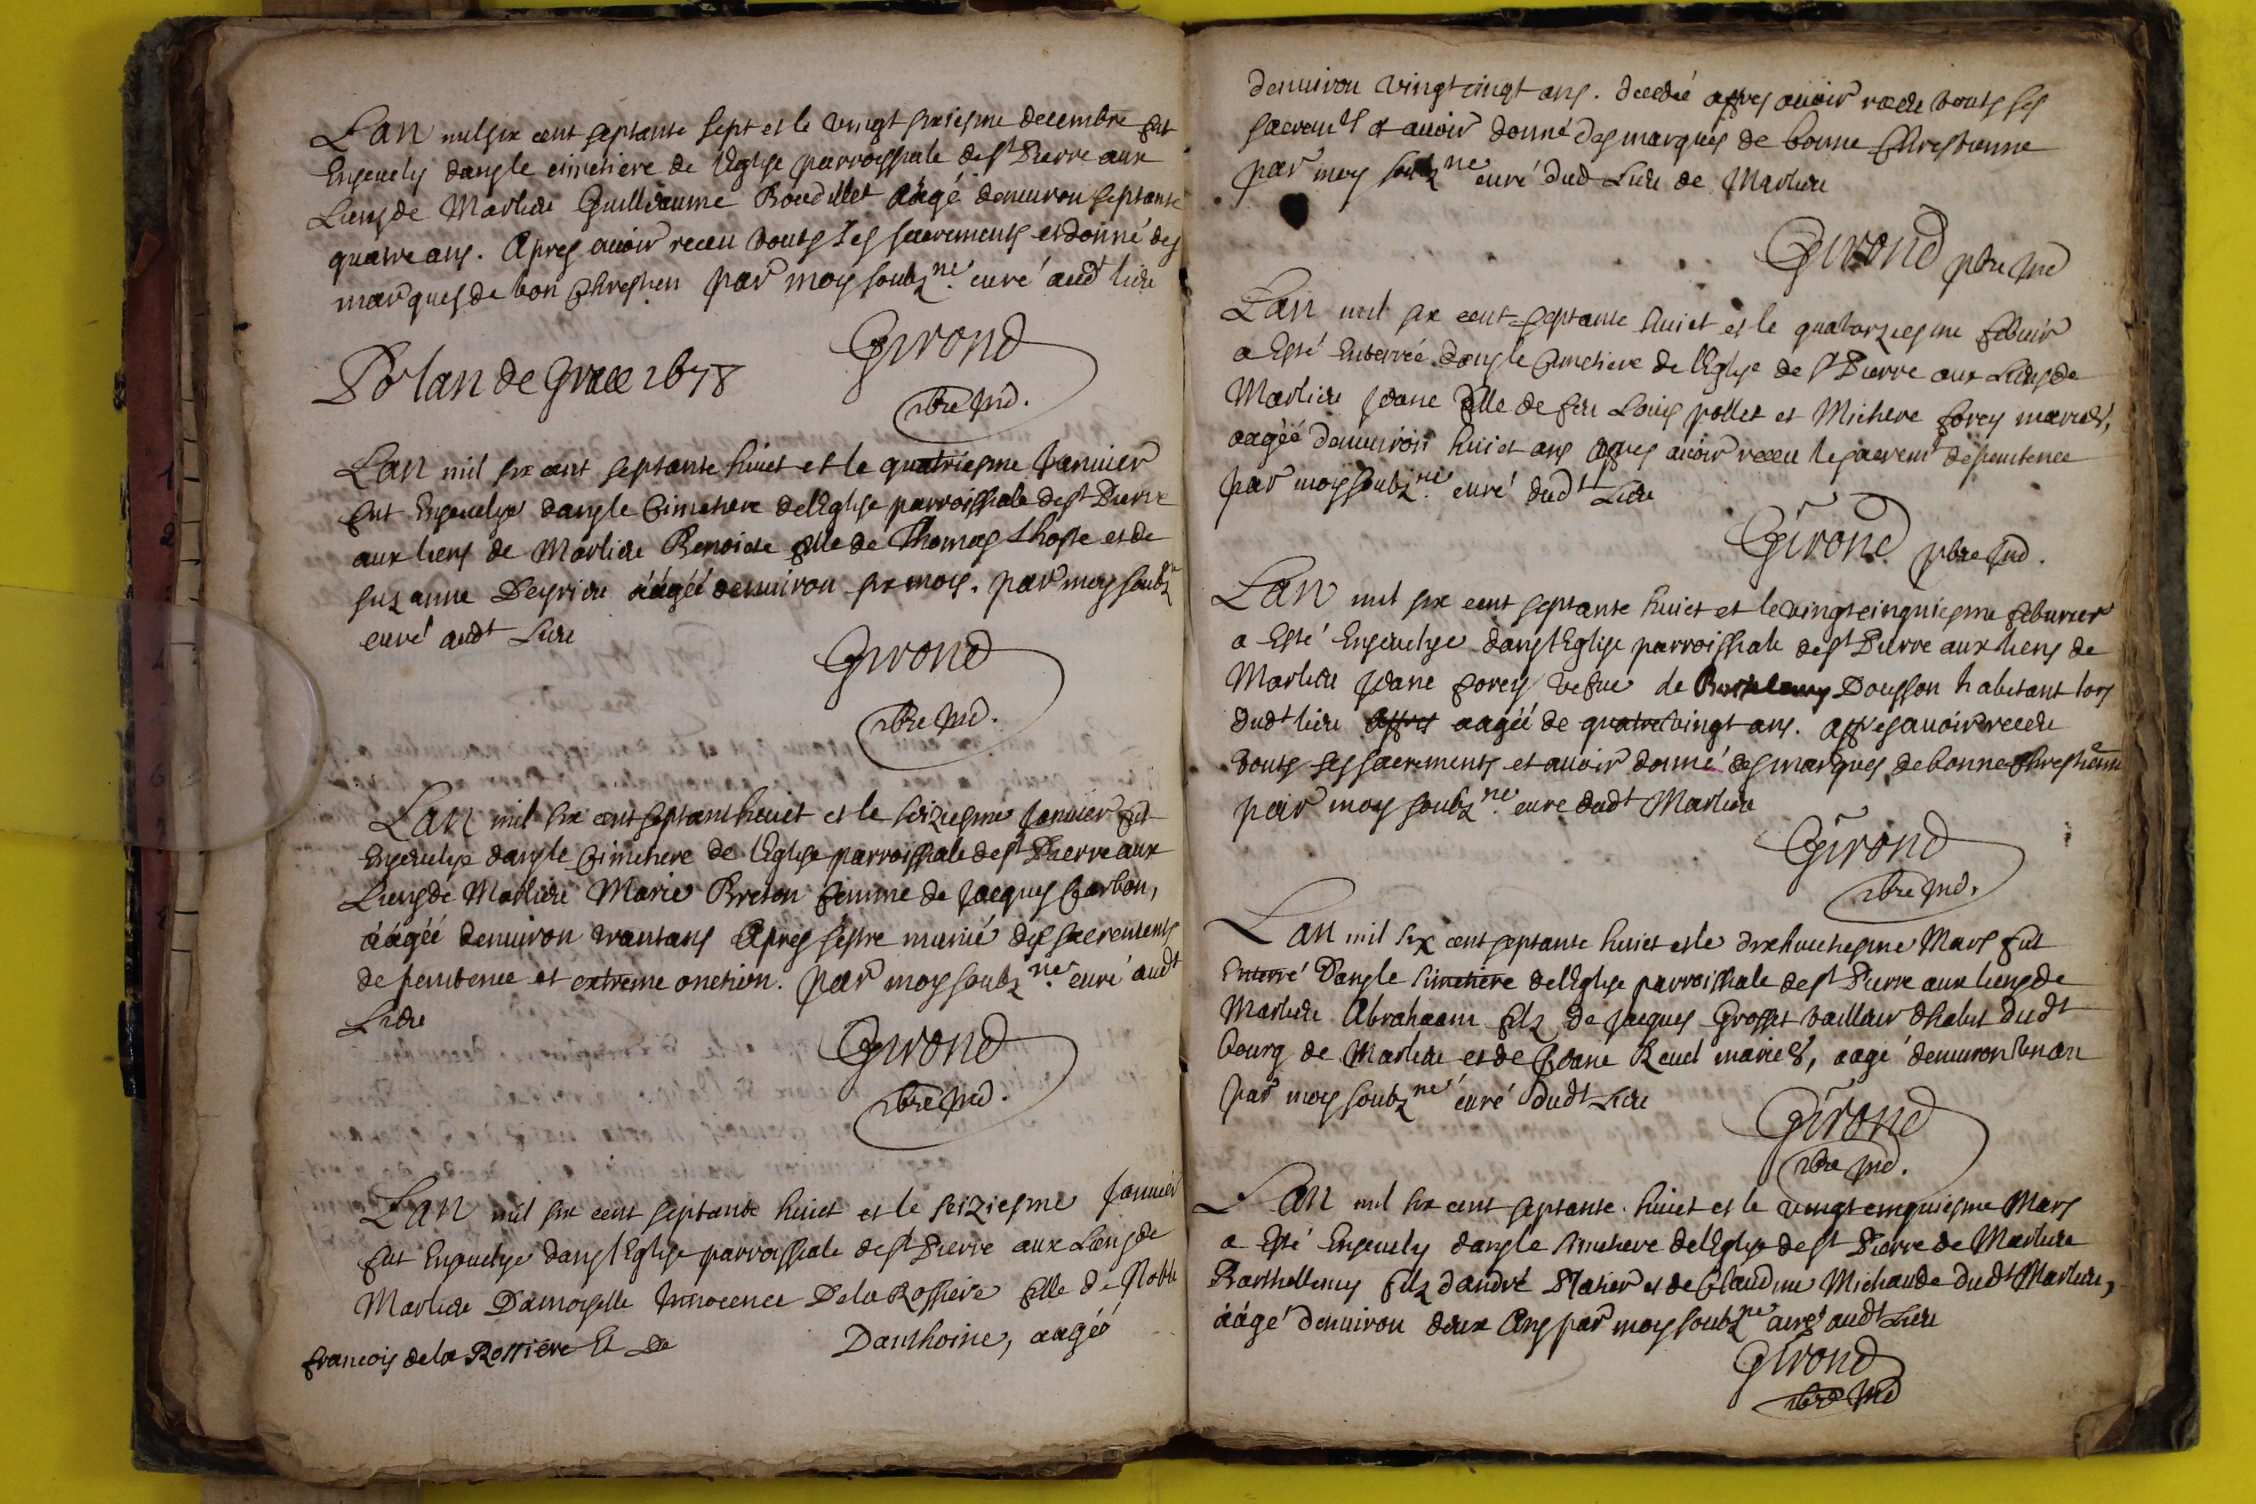 Lan mil six cent septante sept et le vingt sixiesme decembre fut
Ensevely dansle cimetiere de l'Eglise parroissiale de St Pierre aux
Liens de Marlieu Guilleaume Boudillet aagé denviron septante
quatre ans. Apres avoir receu touts ses sacrements et donné des
marques de bon Chrestien par moy soubzne. curé audt lieu
Girond
pbre ind.
Po lan de Grace 1678
Lan mil six cent septante huict et le quatriesme Janvier
fut Ensevelye dansle Cimetiere de lEglise parroissiale de St Pierre
aux liens de Marlieu Benoiste fille de Thomas Lhoste et de
suzanne Deyrieu aagéé denviron six mois. par moy soubzne
curé audt Lieu
Girond
pbre ind.
Lan mil six cent septant huict et le seiziesme Janvier fut
Ensevelye dansle Cimetiere de l'Eglise parroissiale de St Pierre aux
Liens de Marlieu Marie Breton femme de Jacques Carbon,
aagéé denviron trantans Apres sestre munié des sacrements
de penitence et extreme onction. par moy soubzne. curé audt
Lieu
Girond
pbre ind.
Lan mil six cent septante huict et le seiziesme Janvier
fut Ensevelye dans lEglise parroissiale de St Pierre aux Liens de
Marlieu Damoyselle Innocence De la Rossiere fille de Noble
francois de la Rossiere Et De Danthoine, aagéé
denviron vingt cinqt ans. decedeé appres avoir receu touts ses
sacremts et avoir donné des marques de bonne Chrestienne
par moy soubzne curé dud Lieu de Marlieu
Girond pbre ind
Lan mil six cent septante huict et le quatorziesme febvrier
a Esté Enterrée dansle Cimetiere de lEglise de St Pierre aux Liens de
Marlieu Joane fille de feu Louis pollet et Michere forey mariés,
aagéé denviron huict ans appres avoir receu le sacremt de penitence
par moy soubzne. curé dudt Lieu
Girond pbre ind.
Lan mil six cent septante huict et le vingt cinquiesme febvrier
a Esté Ensevelye dans lEglise parroissiale de St Pierre aux liens de
Marlieu Joane forey vefue de Barthelemy Dousson habitant lors
dudt lieu appres aagéé de quatre vingt ans. appres avoir receu
touts ses sacrements et avoir donné des marques de bonne Chrestienne
par moy soubzne. cure dudt Marlieu
Girond
pbre ind.
Lan mil six cent septante huict et le dixhuictiesme Mars fut
Enterré Dansle Cimetiere de lEglise parroissiale de St Pierre aux liens de
Marlieu Abrahaam filz de Jacques Grosset tailleur dhabit dudt
bourg de Marlieu et de Joane Revel mariés, aagé denviron Un an
par moy soubzne curé dudt Lieu
Girond
pbre ind.
Lan mil six cent septante. huict et le vingt cinquiesme Mars
a Esté Ensevely dansle Cimetiere de lEglise de St Pierre de Marlieu
Barthellemy filz dandré Platier et de Claudine Michaude dudt Marlieu,
aagé denviron deux Ans par moy soubzne curé audt Lieu
Girond
pbre ind